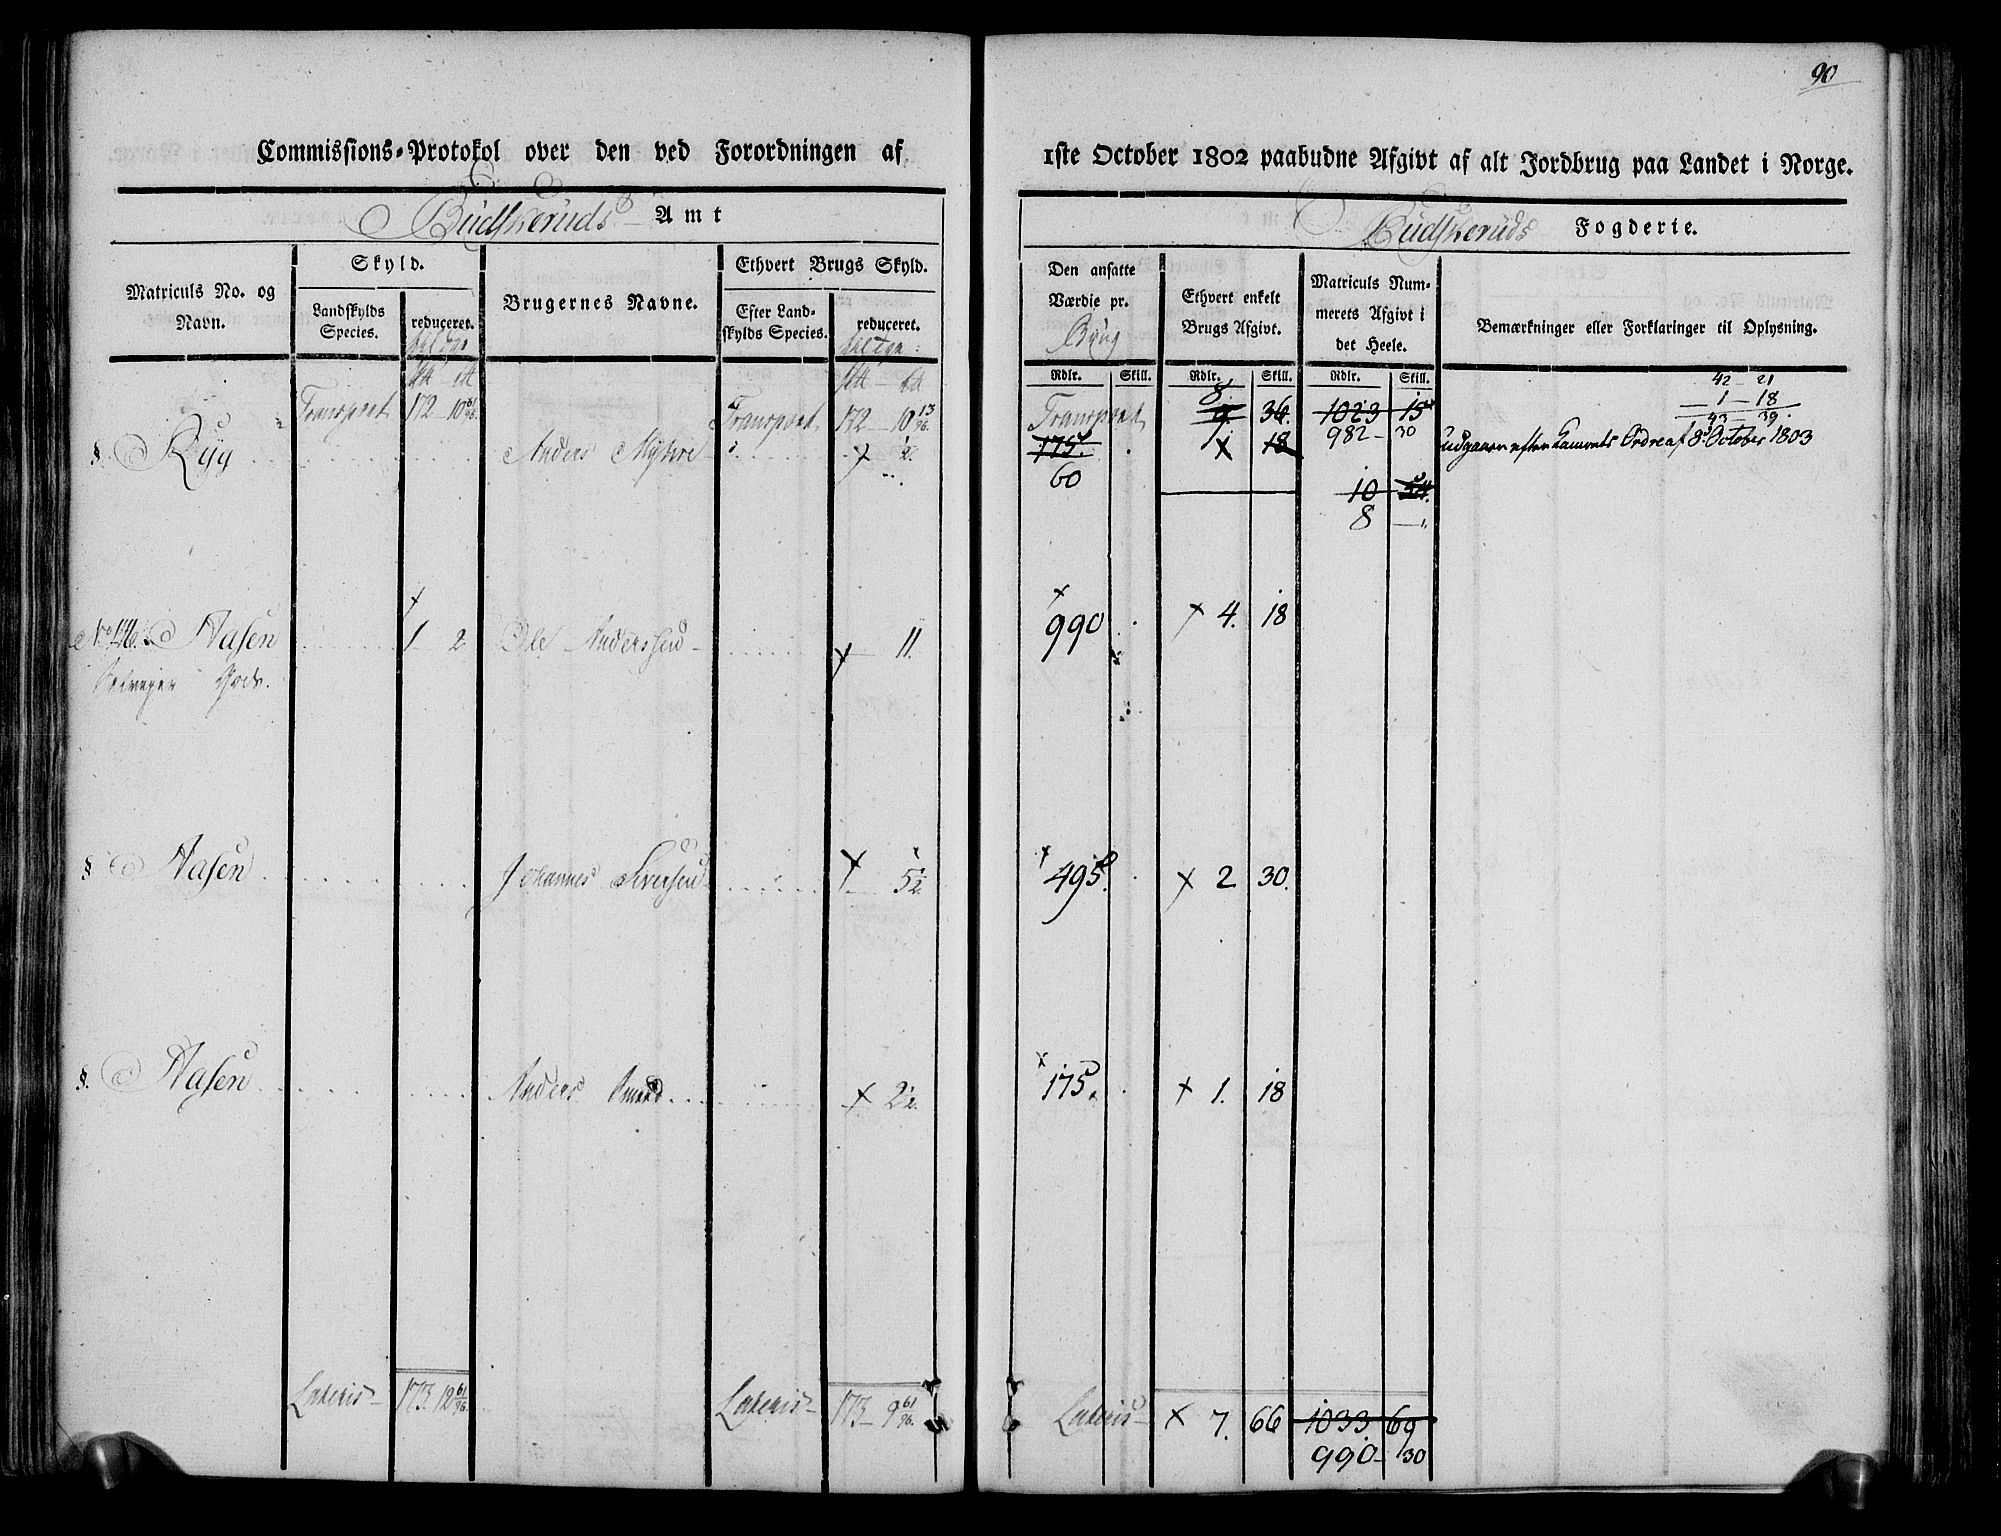 90
Commissions-Protokol over den ved Forordningen af
1ste October 1802 paabudne Afgivt af alt Jordbrug paa Landet i Norge.
Budskeruds Amt
Budskeruds Fogderie.
Matriculs No. og Navn.
Skyld.
Landskylds Species.
reduceret.
Brugernes Navne.
Ethvert Brugs Skyld.
Efter Landskylds Species.
reduceret.
Den ansatte Værdie pr. Brug
Ethvert enkelt Brugs Afgivt.
Matriculs Nummerets Afgivt i det Heele.
Bemærkninger eller Forklaringer til Oplysning.
Rdlr. Skill. Rdlr. Skill. Rdlr. Skill.
42 - 21
1 - 18
43 - 39
Transport 172 - 10 61/96 Transport 172 - 10 13/96 Transport 8 36 1023 15
982 - 30
§ Ryg Anders 2 175 1 18 udgaaer efter Ordre af 8 October 1803
60
10 54
8 -
No 146. Aasen 1 2 Ole Anderssen 11 990 4. 18
Selveyer Gods.
§ Aasen Johannes Iversen 5 1/2 495. 2 30.
§. Aasen Anders 2 1/2 175. 1. 18
Lateris 173. 12 61/96 Lateris 173 - 9 61/96 Lateris 7. 66 1033. 69
990 - 30